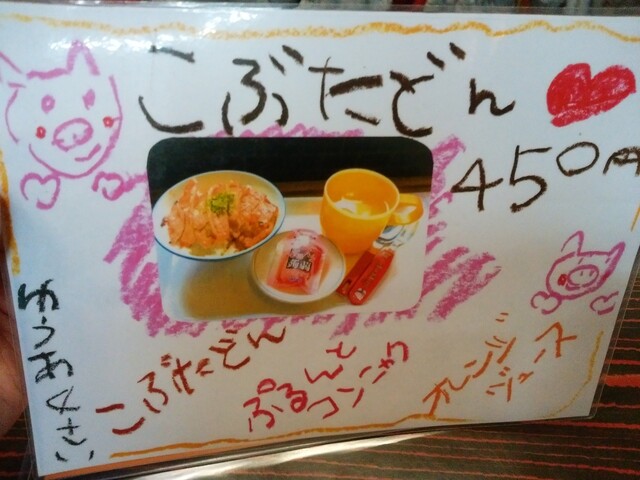 こぶたどん
450円
こぶたどん
ぷるんと
コンニャク
オレンジ
ジュース